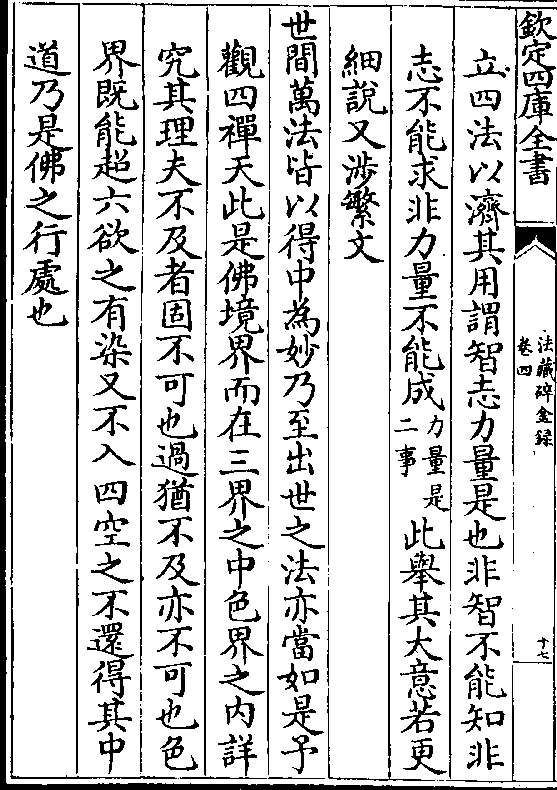 欽定四庫全書
法藏碎金録
卷四
十七
立四法以濟其用謂智志力量是也非智不能知非
志不能求非力量不能成力量是二事此舉其大意若更
細說又涉繁文
世間萬法皆以得中為妙乃至出世之法亦當如是予
觀四禪天此是佛境界而在三界之中色界之内詳
究其理夫不及者固不可也過猶不及亦不可也色
界既能超六欲之有染又不入四空之不還得其中
道乃是佛之行處也